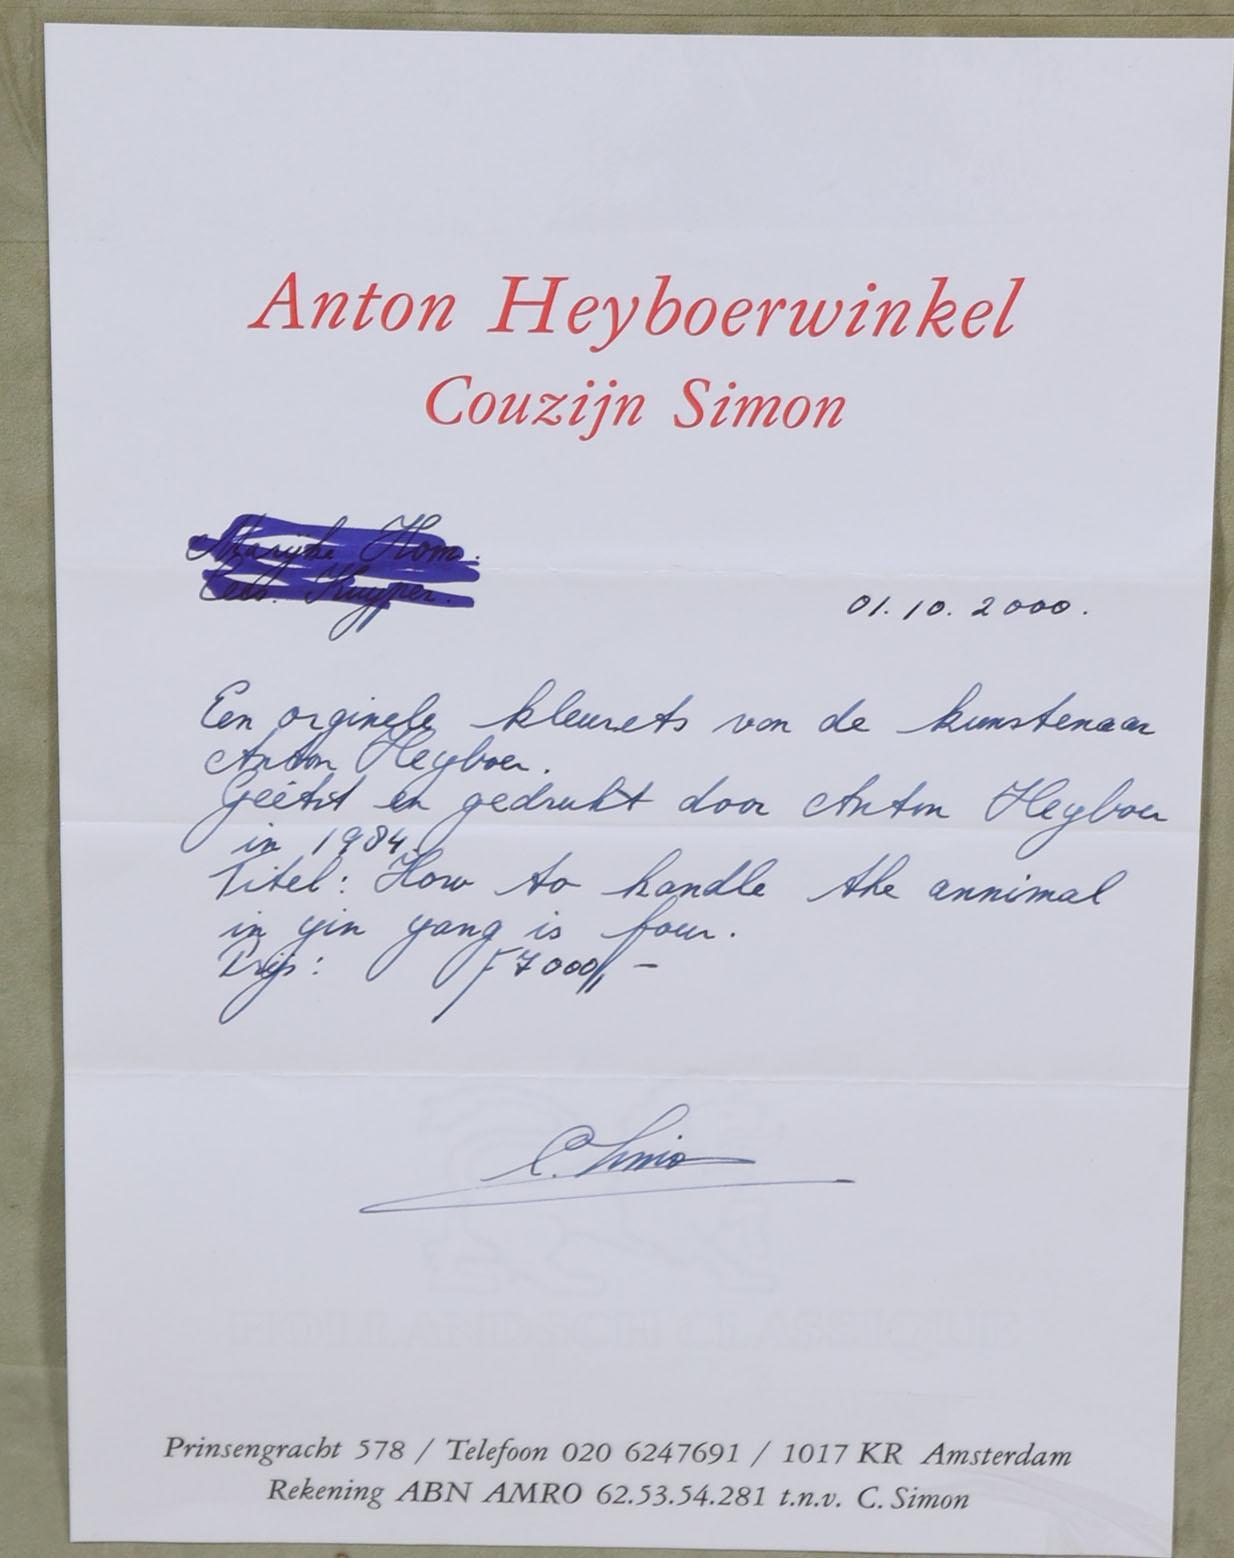 Anton Heyboerwinkel
Couzijn Simon
01.10.2000.
Een orginele kleurets van de kunstenaar
Anton Heyboer.
Geëtst en gedrukt door Anton Heyboer
in 1984.
Titel: How to handle the annimal
in yin yang is four.
Prijs: F 7000,, -
C. Simon
HOLLANDSCH CLASSIQUE
Prinsengracht 578 / Telefoon 020 6247691 / 1017 KR Amsterdam
Rekening ABN AMRO 62.53.54.281 t.n.v. C. Simon